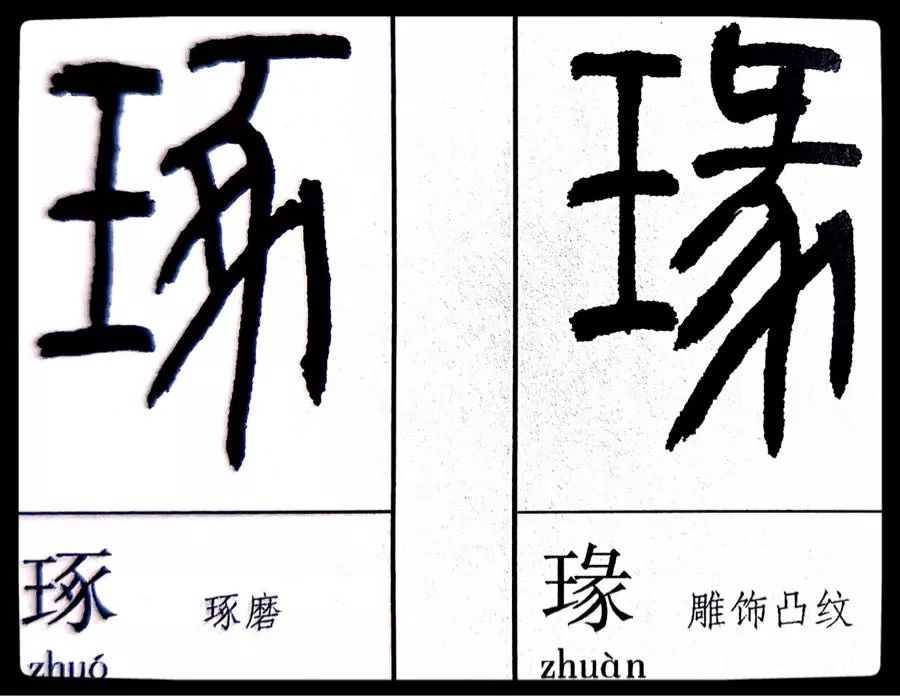 琢
瑑
琢 琢磨
zhuó
瑑 雕饰凸纹
zhuàn